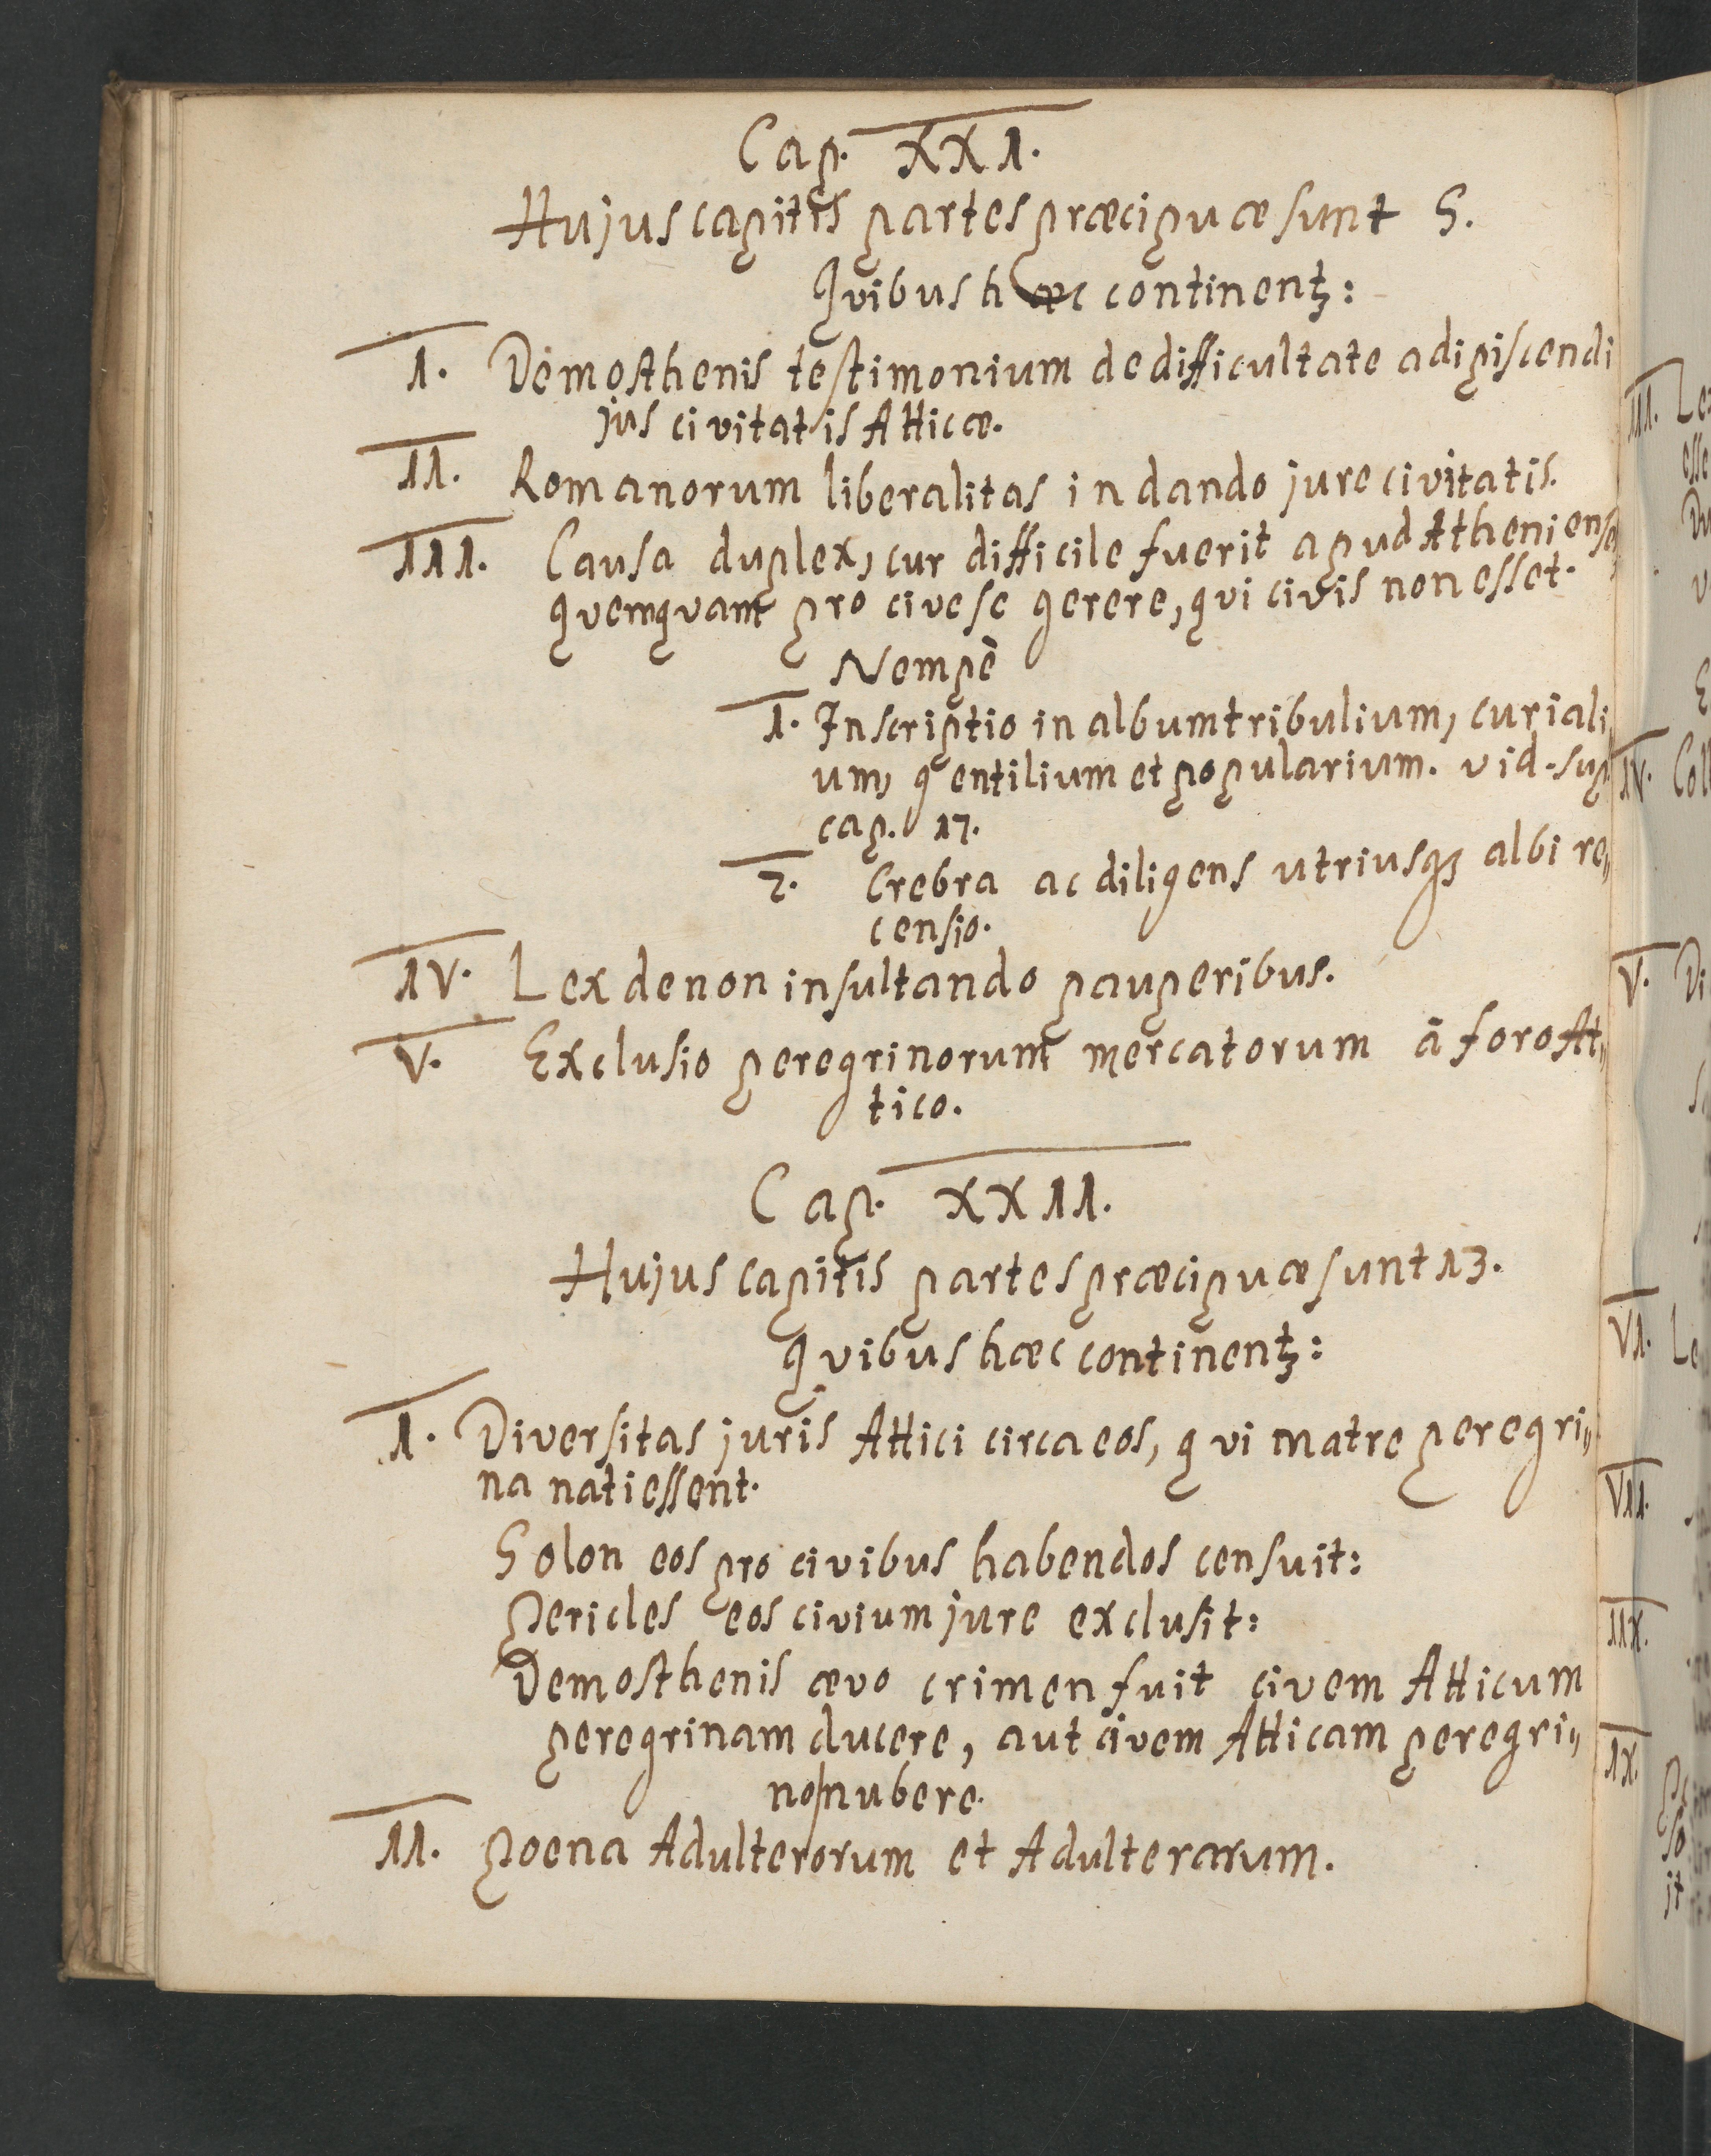 Cap. XXI.
Hujus capitis partes præcipuæ sunt 5.
Qvibus hæc continentꝫ:
I. Demosthenis testimonium de difficultate adipiscendi
jus civitatis Atticæ.
II. Romanorum liberalitas in dando jure civitatis.
III. Causa duplex, cur difficile fuerit apud Atheniense
qvemqvam pro cive se gerere, qvi civis non esset.
Nempè
1. Inscriptio in album tribulium, curiali„
um, gentilium et popularium. vid. sup
cap. 17.
2. Crebra ac diligens utriusqꝫ albi re„
censio.
IV. Lex de non insultando pauperibus.
V. Exclusio peregrinorum mercatorum à foro At„
tico.
Cap. XXII.
Hujus capitis partes præcipuæ sunt 13.
qvibus hæc continentꝫ:
I. Diversitas juris Attici circa eos, qvi matre peregri„
na nati essent.
Solon eos pro civibus habendos censuit:
Pericles eos civium jure exclusit:
Demosthenis ævo crimen fuit civem Atticum
peregrinam ducere, aut civem Atticam peregri„
no nubere.
II. Poena Adulterorum et Adulterarum.
III. Le
esse
Du
v
E
IV. Coll
V. Di
VI. Le
VII.
IIX.
IX.
so
it